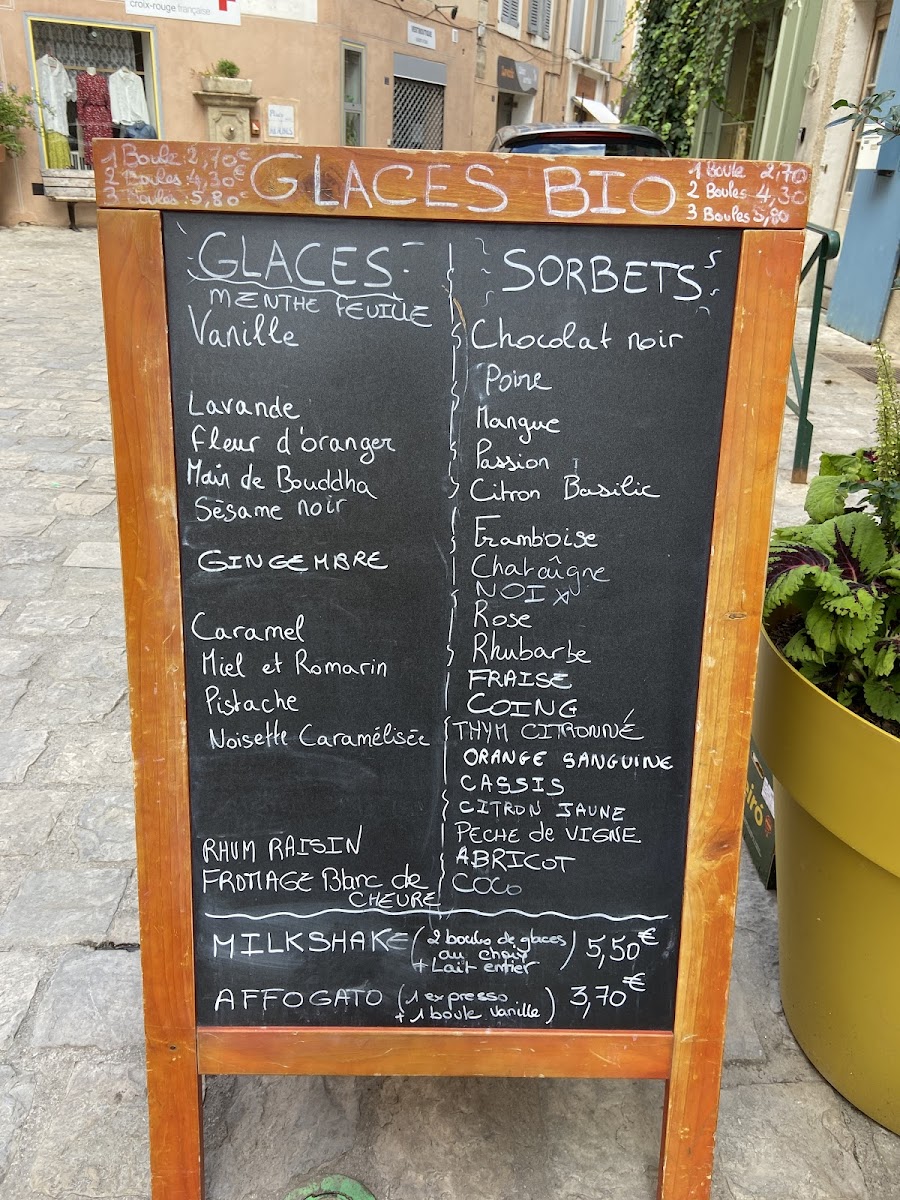 croix-rouge française
1 Boule 2,70€
2 Boules 4,30€
3 Boules 5,80€
GLACES BIO
1 Boule 2,70
2 Boules 4,30
3 Boules 5,80
GLACES
MENTHE FEUILLE
Vanille
Lavande
Fleur d'oranger
Main de Bouddha
Sèsame noir
GINGEMBRE
Caramel
Miel et Romarin
Pistache
Noisette Caramélisée
RHUM RAISIN
FROMAGE Blanc de
CHEVRE
SORBETS
Chocolat noir
Poire
Mangue
Passion
Citron Basilic
Framboise
Chataîgne
NOIX
Rose
Rhubarbe
FRAISE
COING
THYM CITRONNÉ
ORANGE SANGUINE
CASSIS
CITRON JAUNE
PECHE de VIGNE
ABRICOT
COCO
MILKSHAKE (2 boules de glaces
au choix
+ Lait entier) 5,50€
AFFOGATO (1 expresso
+ 1 boule vanille) 3,70€